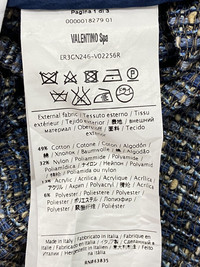 Pagina 1 di 3
0000018279 01
VALENTINO Spa
ER3GN246-V02256R
External fabric / Tessuto esterno / Tissu
extérieur / Tejido exterior / 表地 / внешний
материал / Oberstoff / 面料 / Tecido
49% Cotton / Cotone / Coton / Algodón /
綿 / Хлопок / Baumwolle / 棉 / Algodão
32% Nylon / Poliammide / Polyamide /
Poliamida / ナイロン / Нейлон / Polyamid /
Poliamida ou nylon
Acrylic / Acrilica / Acrylique / Acrílica /
アクリル / Акрил / Polyacryl / Acrílico
6% Polyester / Poliestere / Polyester /
Poliéster / ポリエステル / Полиэфир /
Polyester / Poliéster
Made in Italy / Fabbricato in Italia / Fabriqué
en Italie / Fabricado en Italia / イタリア製 /
RN#43835